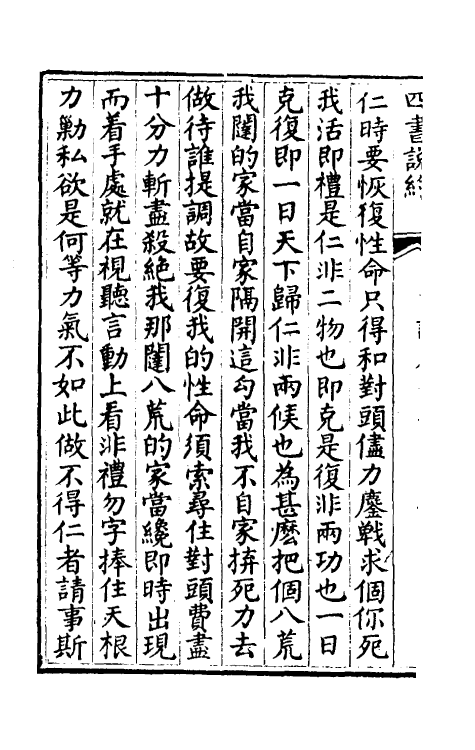 四書說約
仁時要恢復性命只得和對頭儘力鏖戰求個你死
我活即禮是仁非二物也即克是復非兩功也一日
克復即一日天下歸仁非兩候也為甚麽把個八荒
我闥的家當自家隔開這勾當我不自家拚死力去
做待誰提調故要復我的性命須索尋住對頭費盡
十分力斬盡殺絕我那闥八荒的家當纔即時出現
而着手處就在視聽言動上看非禮勿字捧住天根
力勦私欲是何等力氣不如此做不得仁者請事斯